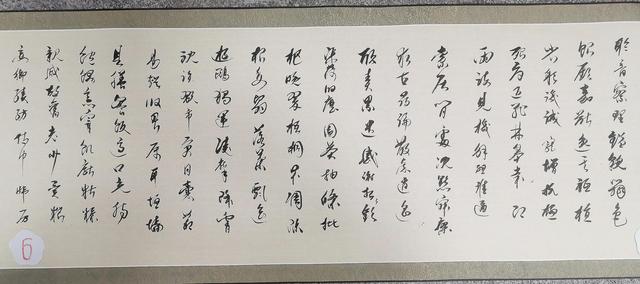 聆音察理鑑貌辨色
貽厥嘉猷勉其祗植
省躬譏誡寵增抗極
殆辱近恥林皋幸即
兩疏見機解組誰逼
索居閒處沉默寂寥
求古尋論散慮逍遙
欣奏累遣慼謝歡招
渠荷的歷園莽抽條枇
杷晚翠梧桐早凋陳
根委翳落葉飄颻
遊鵾獨運凌摩絳霄
耽讀翫市寓目囊箱
易輶攸畏屬耳垣墻
具膳餐飯適口充腸
飽飫烹宰飢厭糟糠
親戚故舊老少異糧
妾御績紡侍巾帷房
6